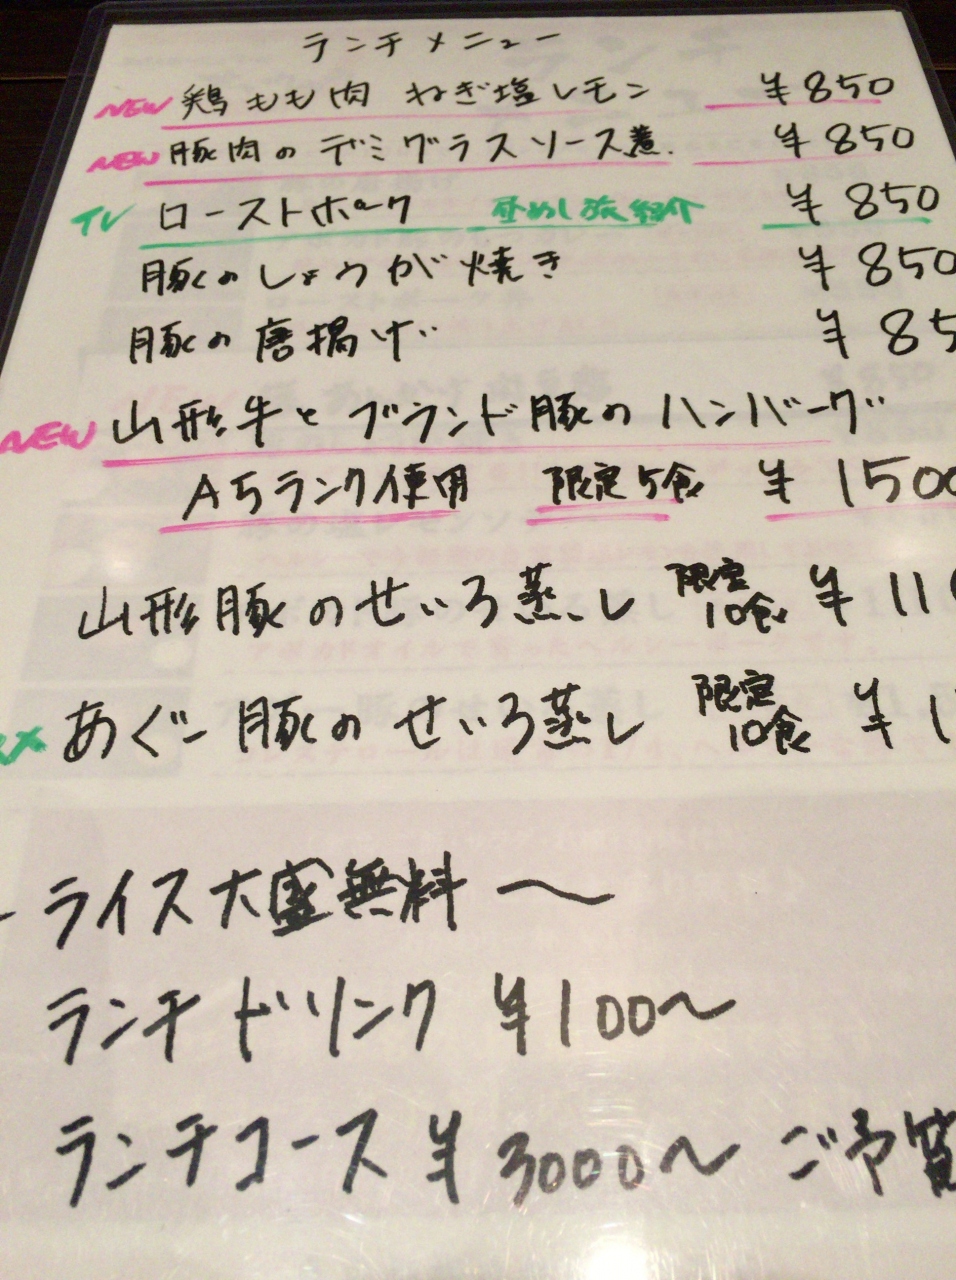 ランチメニュー
NEW 鶏もも肉 ねぎ塩レモン ¥850
NEW 豚肉の デミグラスソース煮 ¥850
TV ローストポーク 昼めし旅紹介 ¥850
豚のしょうが焼き ¥850
豚の唐揚げ ¥85
NEW 山形牛とブランド豚のハンバーグ
A5ランク使用 限定5食 ¥1500
山形豚のせいろ蒸し 限定10食 ¥110
あぐー豚のせいろ蒸し 限定10食 ¥1
ライス大盛無料 〜
ランチドリンク ¥100〜
ランチコース ¥3000〜 ご予算